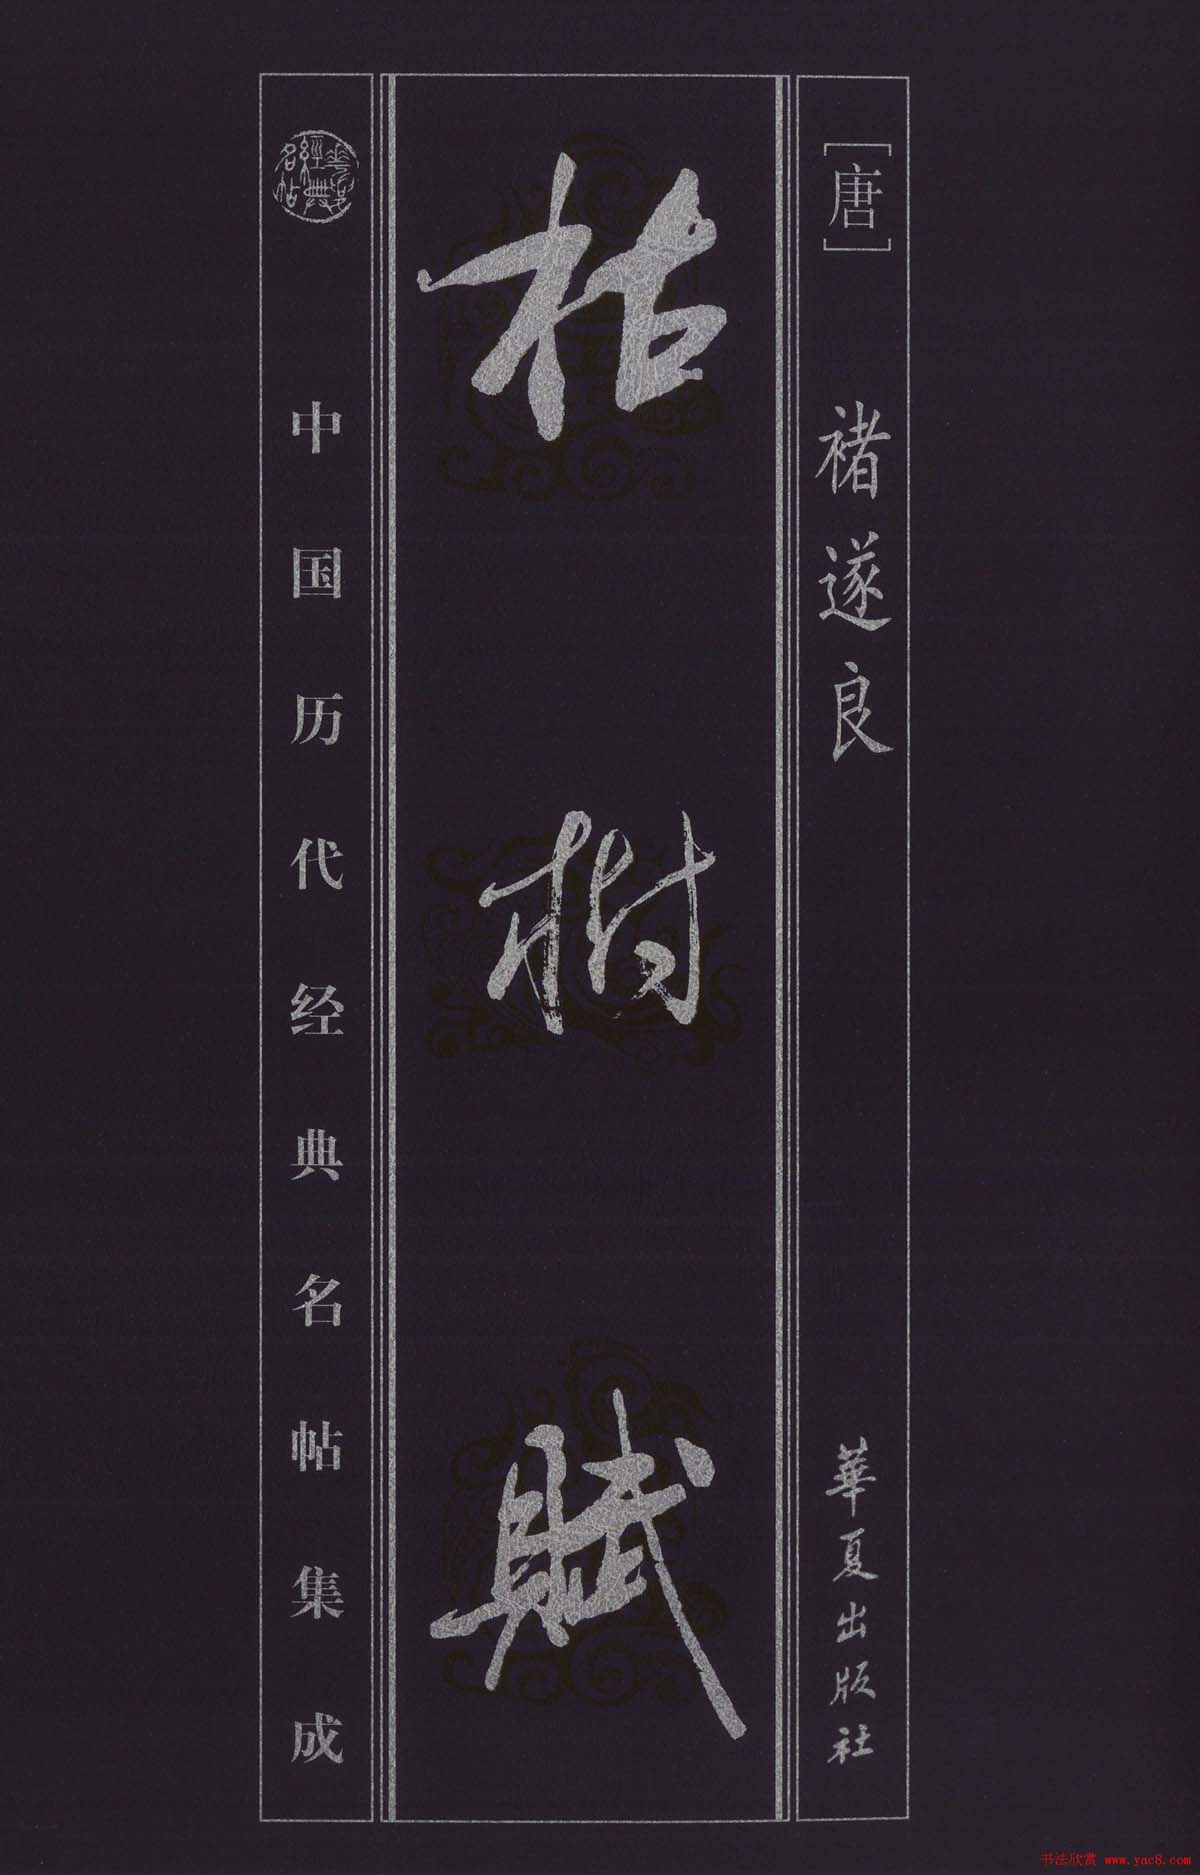 [唐]
褚遂良
華夏出版社
枯樹賦
經典
名帖
中国历代经典名帖集成
书法欣赏 www.yac8.com